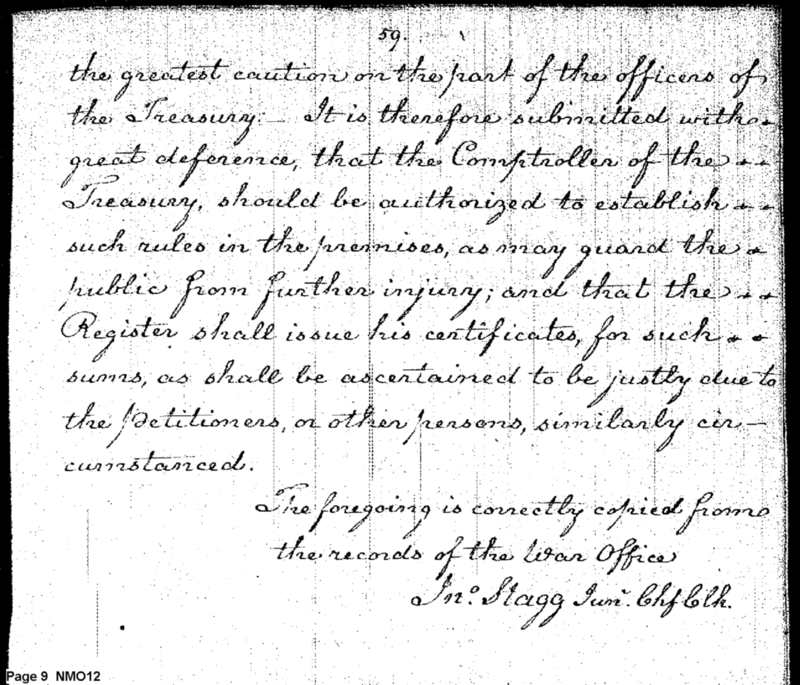 59.
the greatest caution on the part of the officers of
the Treasury:— It is therefore submitted with
great deference, that the Comptroller of the
Treasury, should be authorized to establish
such rules in the premises, as may guard the
public from further injury; and that the
Register shall issue his certificates, for such
sums, as shall be ascertained to be justly due to
the petitioners, or other persons, similarly cir—
cumstanced.
The foregoing is correctly copied from
the records of the War Office
Jno. Stagg Junr. Chf Clk.
Page 9 NMO12